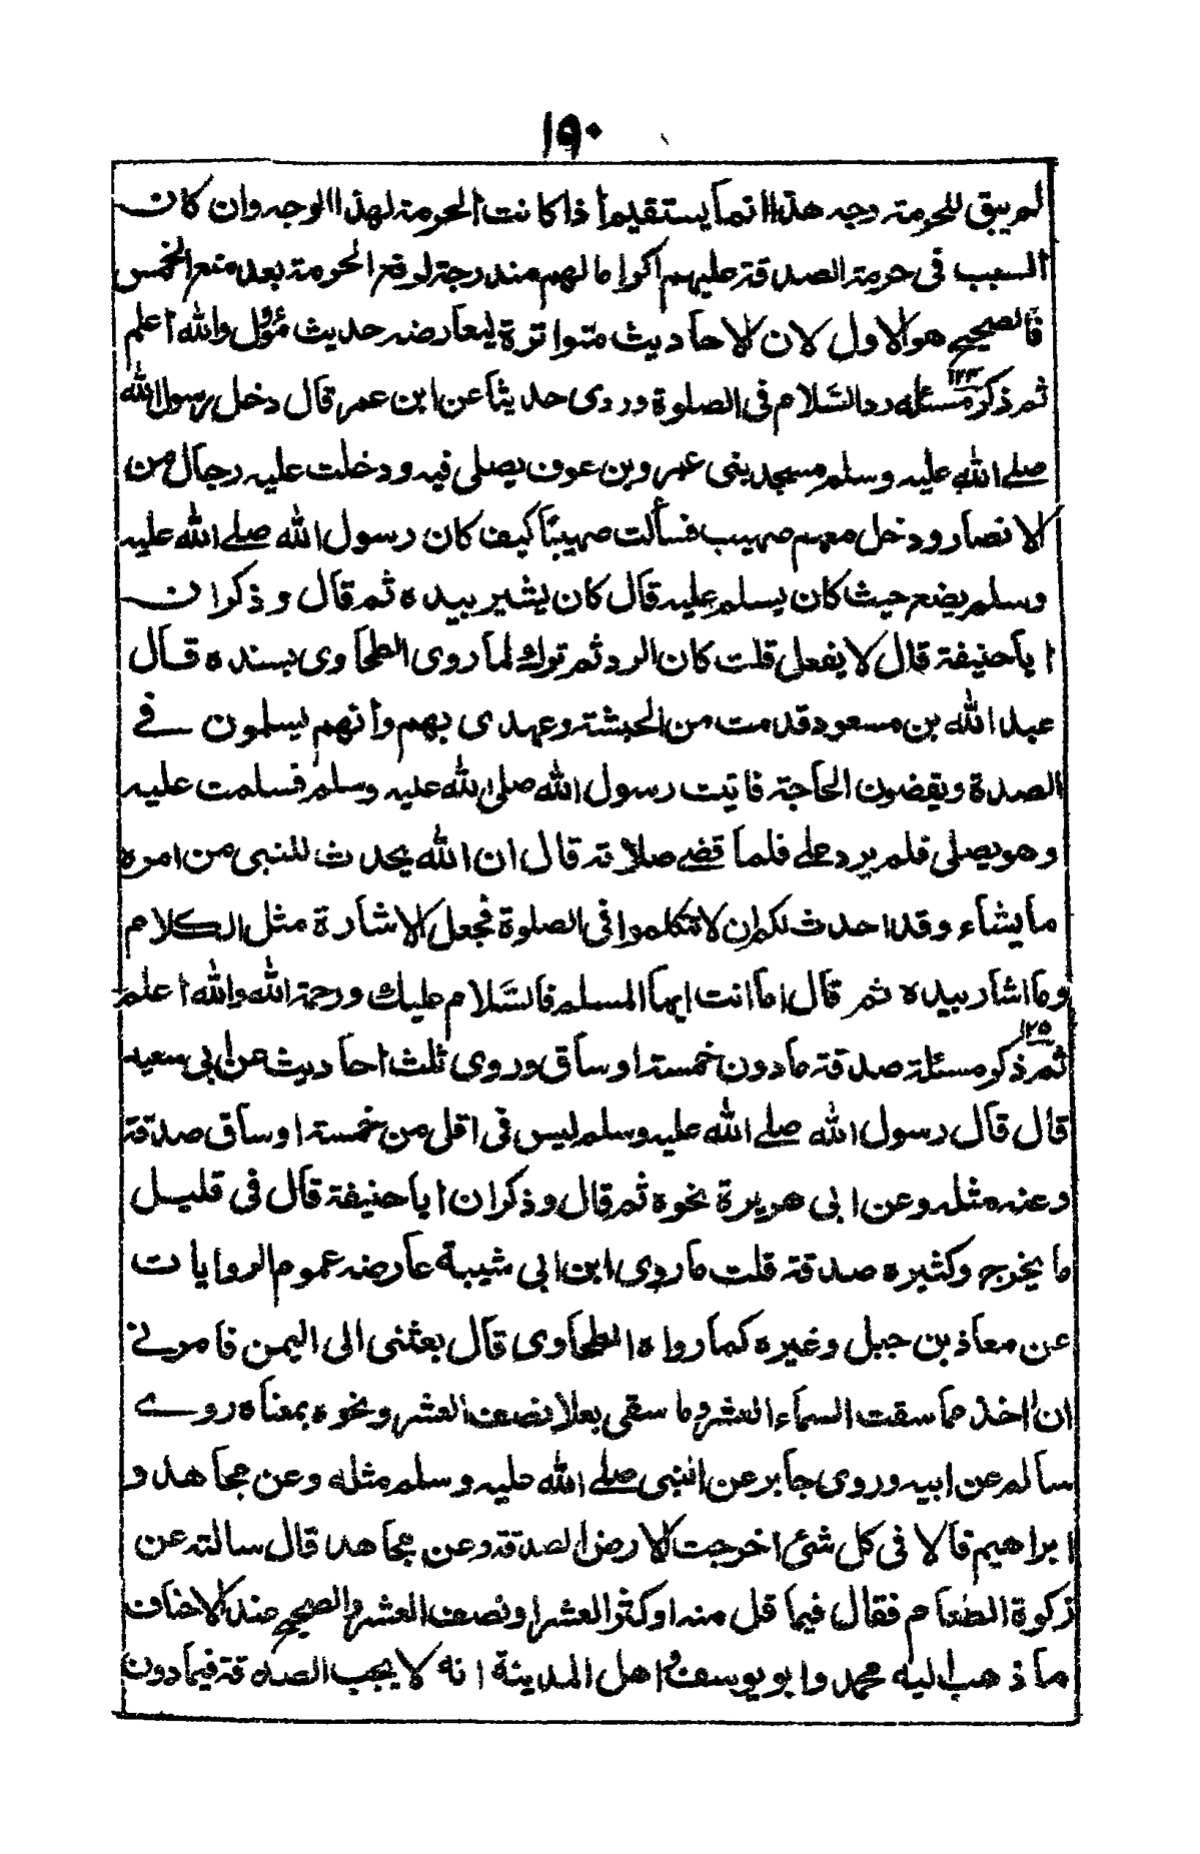 ١٩٠
لم يبق للحرمة وجه هذا انما يستقيم اذا كانت الحرمة لهذا الوجه وان كان
السبب فى حرمة الصدقة عليهم اكراما لهم مندرجة لوقع الحرمة بعد منع الخمس
فالصحيح هو الاول لان الاحاديث متواترة ليعارضه حديث مؤول والله اعلم
١٢٤
ثم ذكر مسئله رد السلام فى الصلوة وروى حديثا عن ابن عمر قال دخل رسول الله
صلے الله عليه وسلم مسجد بنى عمرو بن عوف يصلى فيه ودخلت عليه رجال من
الانصار ودخل معهم صهيب فسألت صهيبًا كيف كان رسول الله صلے الله عليه
وسلم يضع حيث كان يسلم عليه قال كان يشير بيده ثم قال وذكر ان
ابا حنيفة قال لا يفعل قلت كان الرد ثم ترك لما روى الطحاوى بسنده قال
عبد الله بن مسعود قدمت من الحبشة وعهدى بهم وأنهم يسلمون فے
الصلاة ويقضون الحاجة فاتيت رسول الله صلى الله عليه وسلم فسلمت عليه
وهو يصلى فلم يرد علے فلما قضے صلاته قال ان الله يحدث للنبى من امره
ما يشاء وقد احدث لكم ان لا تتكلموا فى الصلوة فجعل الاشارة مثل الكلام
وما اشار بيده ثم قال اما انت ايها المسلم فالسَّلام عليك ورحمة الله والله اعلم
١٢٥
ثم ذكر مسئلة صدقة ما دون خمسة اوساق وروى ثلث احاديث عن ابى سعيد
قال قال رسول الله صلے الله عليه وسلم ليس فى اقل من خمسة اوساق صدقة
وعنه مثله وعن ابى هريرة نحوه ثم قال وذكر ان ابا حنيفة قال فى قليل
ما يخرج وكثيره صدقة قلت ما روى ابن ابى شيبة عارضه عموم الروايات
عن معاذ بن جبل وغيره كما رواه الطحاوى قال بعثنى الى اليمن فامرنے
ان اخذ مما سقت السماء العشر وما سقى بعلا نصف العشر ونحوه بمعناه روے
سالم عن ابيه وروى جابر عن النبى صلے الله عليه وسلم مثله وعن مجاهد و
ابراهيم قالا فى كل شئ اخرجت الارض الصدقة وعن مجاهد قال سالته عن
زكوة الطعام فقال فيما قل منه او كثر العشر او نصف العشر والصحيح عند الاحناف
ما ذهب اليه محمد وابو يوسف و اهل المدينة انه لا يجب الصدقة فيما دون